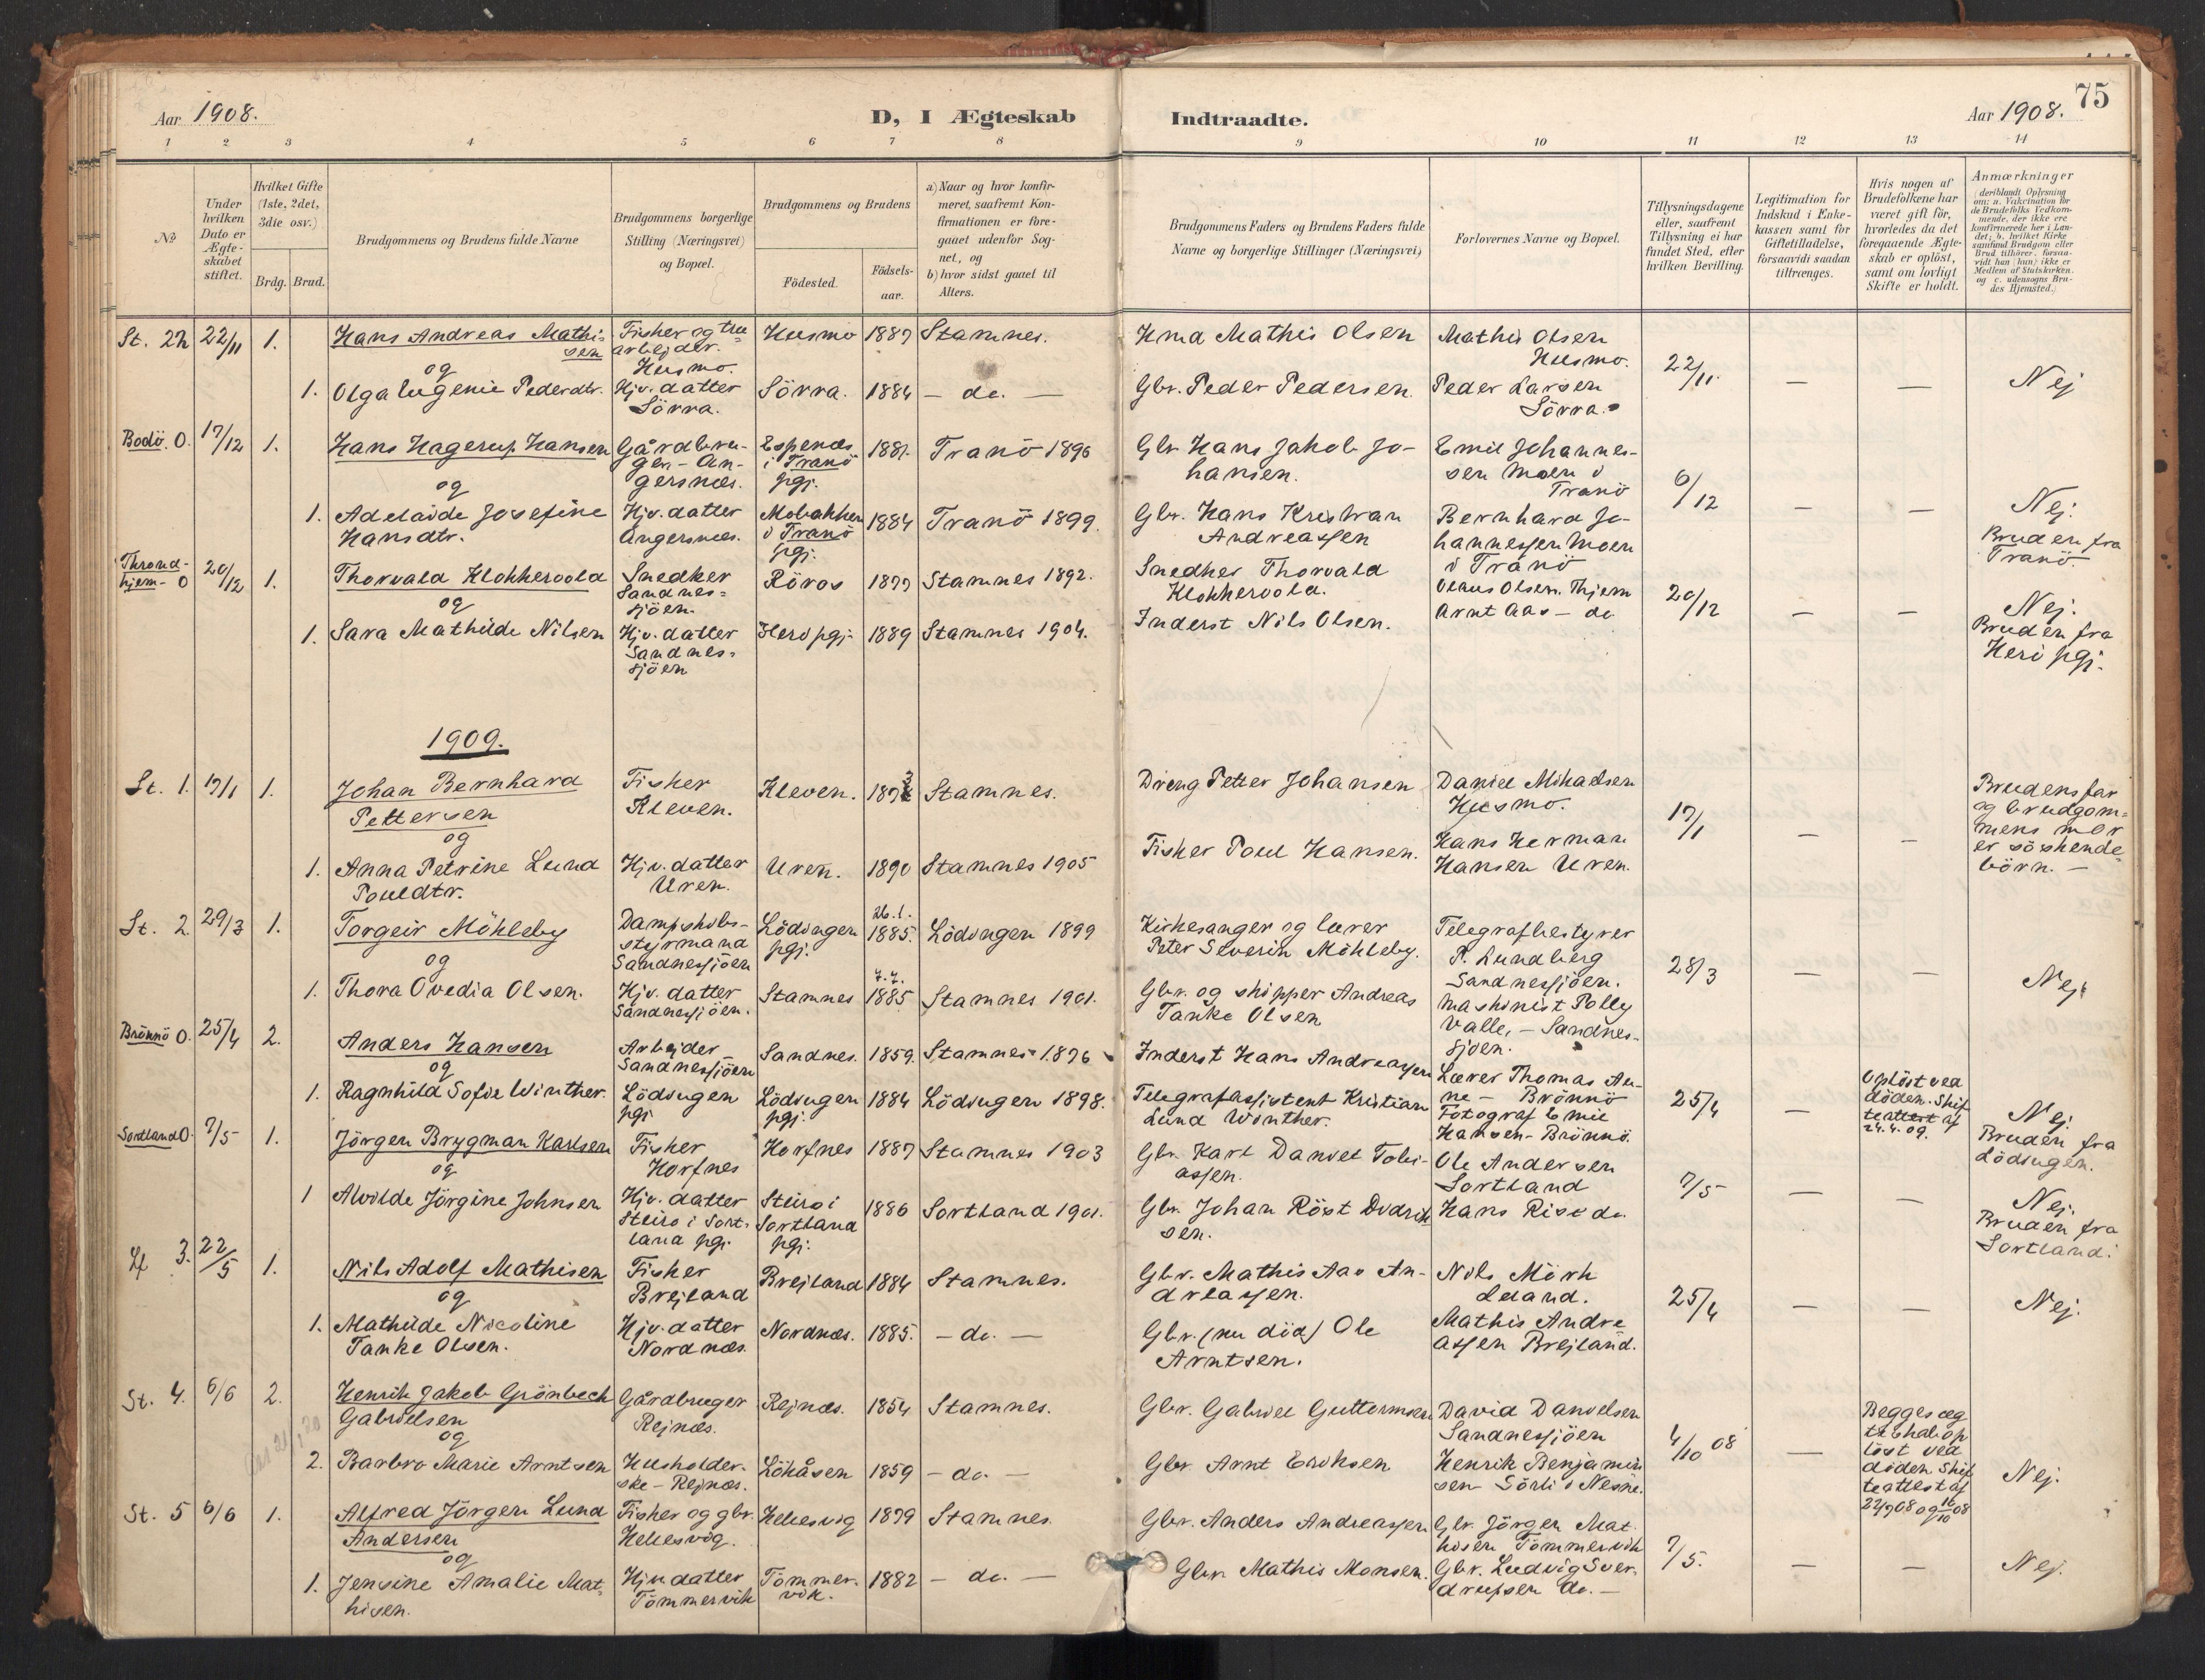 Aar 1908.
D, I Ægteskab
Indtraadte.
Aar 1908.
75
1 2 3 4 5 6 7 8 9 10 11 12 13 14
No
Under
hvilken
Dato er
Ægte-
skabet
stiftet.
Hvilket Gifte
(1ste, 2det,
3die osv.)
Brdg. Brud.
Brudgommens og Brudens fulde Navne
Brudgommens borgerlige
Stilling (Næringsvei)
og Bopæl.
Brudgommens og Brudens
Fødested.
Fødsels-
aar.
a) Naar og hvor konfir-
meret, saafremt Kon-
firmationen er fore-
gaaet udenfor Sog-
net, og
b) hvor sidst gaaet til
Alters.
Brudgommens Faders og Brudens Faders fulde
Navne og borgerlige Stillinger (Næringsvei)
Forlovernes Navne og Bopæl.
Tillysningsdagene
eller, saafremt
Tillysning ei har
fundet Sted, efter
hvilken Bevilling.
Legitimation for
Indskud i Enke-
kassen samt for
Giftetilladelse,
forsaavidt saadan
tiltrænges.
Hvis nogen af
Brudefolkene har
været gift før,
hvorledes da det
foregaaende Ægte-
skab er opløst,
samt om lovligt
Skifte er holdt.
Anmærkninger
(deriblandt Oplysning
om: a. Vakcination for
de Brudefolks Vedkom-
mende, der ikke ere
konfirmerede her i Lan-
det; b. hvilket Kirke
samfund Brudgom eller
Brud tilhører, forsaa-
vidt han (hun) ikke er
Medlem af Statskirken.
og c. udensogns Bru-
des Hjemsted.)
St. 22 22/11 1. Hans Andreas Mathi-
sen
og
Fisker og træ-
arbejder.
Husmo.
Husmo 1887 Stamnes.
Hmd Mathis Olsen
Mathis Olsen
Husmo.
22/11. — — Nej
1. Olga Eugenie Pedersdtr.
Hjv. datter
Sörra.
Sörra. 1884 — do. —
Gbr. Peder Pedersen.
Peder Larsen
Sörra.
Bodö. O. 17/12 1. Hans Hagerup Hansen
og
Gårdbru-
ger - An-
gersnes.
Espenes
i Tranö
pgj.
1881. Tranö 1896
Gbr Hans Jakob Jo-
hansen.
Emil Johannes-
sen Moen i
Tranö
6/12 — — Nej.
Bruden fra
Tranö.
1. Adelaide Josefine
Hansdtr.
Hjv. datter
Angersnes.
Mobakken
i Tranö
pgj.
1884 Tranö 1899.
Gbr. Hans Kristian
Andreassen
Bernhard Jo-
hannessen Moen
i Tranö
Thrond-
hjem - O 20/12 1. Thorvald Klokkervold
og
Snedker
Sandnes-
sjöen.
Röros 1877 Stamnes 1892.
Snedker Thorvald
Klokkervold.
Olaus Olsen. Thjem
Arnt Aas - do
20/12 — — Nej.
Bruden fra
Herö pgj.
1. Sara Mathilde Nilsen
Hjv. datter
Sandnes-
sjöen
Herö pgj. 1889 Stamnes 1904.
Inderst Nils Olsen.
1909.
St. 1. 17/1 1. Johan Bernhard
Pettersen
og
Fisker
Kleven.
Kleven. 1873 Stamnes.
Dreng Petter Johansen
Daniel Mikaelsen
Husmo.
17/1 — —
Brudens far
og brudgom-
mens mor
er söskende-
börn. —
1. Anna Petrine Lund
Pouldtr.
Hjv. datter
Uren.
Uren. 1890 Stamnes 1905
Fisker Poul Hansen.
Hans Herman
Hansen Uren.
St. 2. 29/3 1. Torgeir Möhleby
og
Dampskibs-
styrmand
Sandnessjöen
Lödingen
pgj.
26.1.
1885. Lödingen 1899
Kirkesanger og lærer
Peter Severin Möhleby.
Telegrafbestyrer
P. Lundberg
Sandnessjöen.
28/3 — — Nej
1. Thora Ovedia Olsen.
Hjv. datter
Sandnessjöen.
Stamnes
7.7.
1885 Stamnes 1901.
Gbr. og skipper Andreas
Tanke Olsen
Maskinist Polly
Valle, - Sandnes-
sjöen.
Brönnö O. 25/4 2. Anders Hansen
og
Arbejder
Sandnessjöen
Sandnes. 1859. Stamnes 1876
Inderst Hans Andreassen
Lærer Thomas An-
ne - Brönnö
25/4 —
Oplöst ved
döden. Skif-
teattest af
24.4.09.
Nej.
Bruden fra
Lödingen.
1. Ragnhild Sofie Winther.
Lödingen
pgj
Lödingen
pgj.
1884 Lödingen 1898.
Telegrafassistent Kristian
Lund Winther.
Fotograf Emil
Hansen - Brönnö.
Sortland O. 7/5 1. Jörgen Brygman Karlsen
og
Fisker
Horfnes
Horfnes 1887 Stamnes 1903
Gbr. Karl Daniel Tobi-
assen.
Ole Andersen
Sortland
7/5 — — Nej.
Bruden fra
Sortland.
1 Alvilde Jörgine Johnsen
Hjv. datter
Steiro i Sort-
land pgj.
Steiro i
Sortland
pgj.
1886 Sortland 1901.
Gbr. Johan Röst Didrik
sen.
Hans Rise do.
Lf 3. 22/5 1. Nils Adolf Mathisen
og
Fisker
Brejland
Brejland 1884 Stamnes.
Gbr. Mathis Aas An-
dreassen.
Nils Mörk
Leland.
25/4 — — Nej.
1. Mathilde Nicoline
Tanke Olsen.
Hjv. datter
Nordnæs.
Nordnæs. 1885. — do. —
Gbr. (nu död) Ole
Arntsen.
Mathis Andre
assen Brejland.
St. 4. 6/6 2. Henrik Jakob Grönbech
Gabrielsen
og
Gårdbruger
Rejnæs.
Rejnæs. 1854 Stamnes.
Gbr. Gabriel Guttormsen
David Danielsen
Sandnessjöen
4/10 08 —
Begges æg
teskab op
löst ved
döden Skif
teattest af
22/9 08 og 16/10 08
Nej.
2. Barbro Marie Arntsen
Husholder-
ske - Rejnæs.
Lökåsen 1859 — do. —
Gbr Arnt Eriksen
Henrik Benjamin
sen Sörli i Nesne.
St. 5 6/6 1. Alfred Jörgen Lund
Andersen
og
Fisker og gbr.
Hellesvig.
Hellesvig 1879 Stamnes.
Gbr. Anders Andreassen
Gbr. Jörgen Mat-
hisen Tömmervik
7/5. — — Nej.
1. Jensine Amalie Mat-
hisen.
Hjv datter
Tömmervik
Tömmer-
vik.
1882 — do. —
Gbr. Mathis Monsen.
Gbr. Ludvig Sver-
drupsen do. —